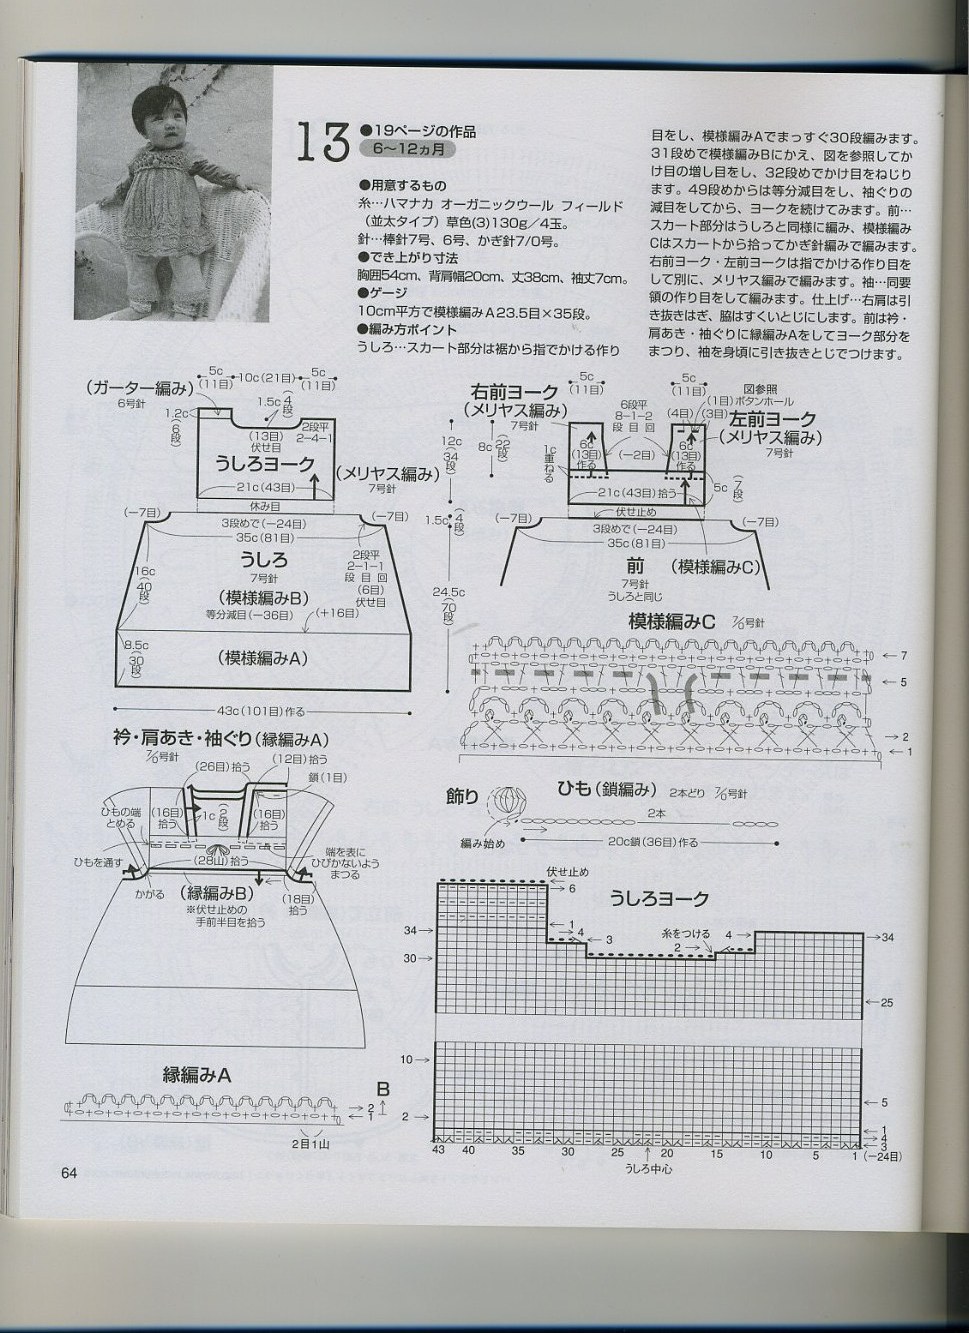 13
●19ページの作品
6〜12ヵ月
●用意するもの
糸…ハマナカ オーガニックウール フィールド
(並太タイプ)草色(3)130g／4玉。
針…棒針7号、6号、かぎ針7/0号。
●でき上がり寸法
胸囲54cm、背肩幅20cm、丈38cm、袖丈7cm。
●ゲージ
10cm平方で模様編みA23.5目×35段。
●編み方ポイント
うしろ…スカート部分は裾から指でかける作り
目をし、模様編みAでまっすぐ30段編みます。
31段めで模様編みBにかえ、図を参照してか
け目の増し目をし、32段めでかけ目をねじり
ます。49段めからは等分減目をし、袖ぐりの
減目をしてから、ヨークを続けてみます。前…
スカート部分はうしろと同様に編み、模様編み
Cはスカートから拾ってかぎ針編みで編みます。
右前ヨーク・左前ヨークは指でかける作り目を
して別に、メリヤス編みで編みます。袖…同要
領の作り目をして編みます。仕上げ…右肩は引
き抜きはぎ、脇はすくいとじにします。前は衿・
肩あき・袖ぐりに縁編みAをしてヨーク部分を
まつり、袖を身頃に引き抜きとじでつけます。
(ガーター編み)
6号針
5c
(11目)
10c(21目)
5c
(11目)
1.2c
(6段)
1.5c(4段)
(13目)
伏せ目
2段平
2-4-1
うしろヨーク
(メリヤス編み)
7号針
21c(43目)
休み目
12c
(34段)
(−7目)
3段めで(−24目)
(−7目)
35c(81目)
1.5c(4段)
うしろ
7号針
(模様編みB)
等分減目(−36目)
(+16目)
2段平
2-1-1
段目回
(6目)
伏せ目
16c
(40段)
24.5c
(70段)
8.5c
(30段)
(模様編みA)
43c(101目)作る
右前ヨーク
(メリヤス編み)
7号針
5c
(11目)
5c
(11目)
図参照
(1目)ボタンホール
(4目)
(3目)
左前ヨーク
(メリヤス編み)
7号針
6段平
8-1-2
段目回
(−2目)
8c
(22段)
1c
重ねる
6c
(13目)
作る
6c
(13目)
作る
21c(43目)拾う
5c(7段)
伏せ止め
(−7目)
3段めで(−24目)
(−7目)
35c(81目)
前
7号針
うしろと同じ
(模様編みC)
模様編みC 7/0号針
7
5
2
1
衿・肩あき・袖ぐり(縁編みA)
7/0号針
(26目)拾う
(12目)拾う
鎖(1目)
ひもの端
とめる
(16目)
拾う
1c(2段)
(16目)
拾う
ひもを通す
(28山)拾う
端を表に
ひびかないよう
まつる
かがる
(縁編みB)
※伏せ止めの
手前半目を拾う
(18目)
拾う
縁編みA
B
2
1
2目1山
飾り
編み始め
ひも(鎖編み) 2本どり 7/0号針
2本
20c鎖(36目)作る
伏せ止め
6
うしろヨーク
34
1
4
3
糸をつける
2
4
34
30
25
10
5
2
1
4
3
43 40 35 30 25 20 15 10 5 1(−24目)
うしろ中心
64